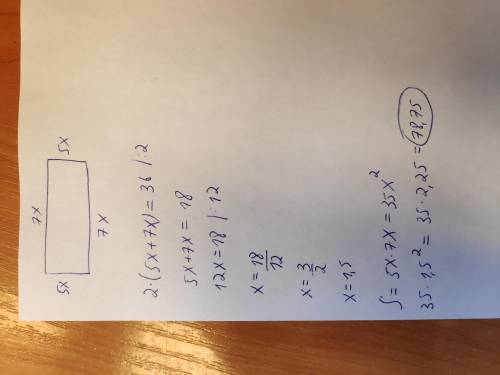 7x
5x
5x
7x
2·(5x+7x)=36 |:2
5x+7x=18
12x=18 |:12
x=18/12
x=3/2
x=1,5
S=5x·7x=35x²
35·1,5²=35·2,25=78,75